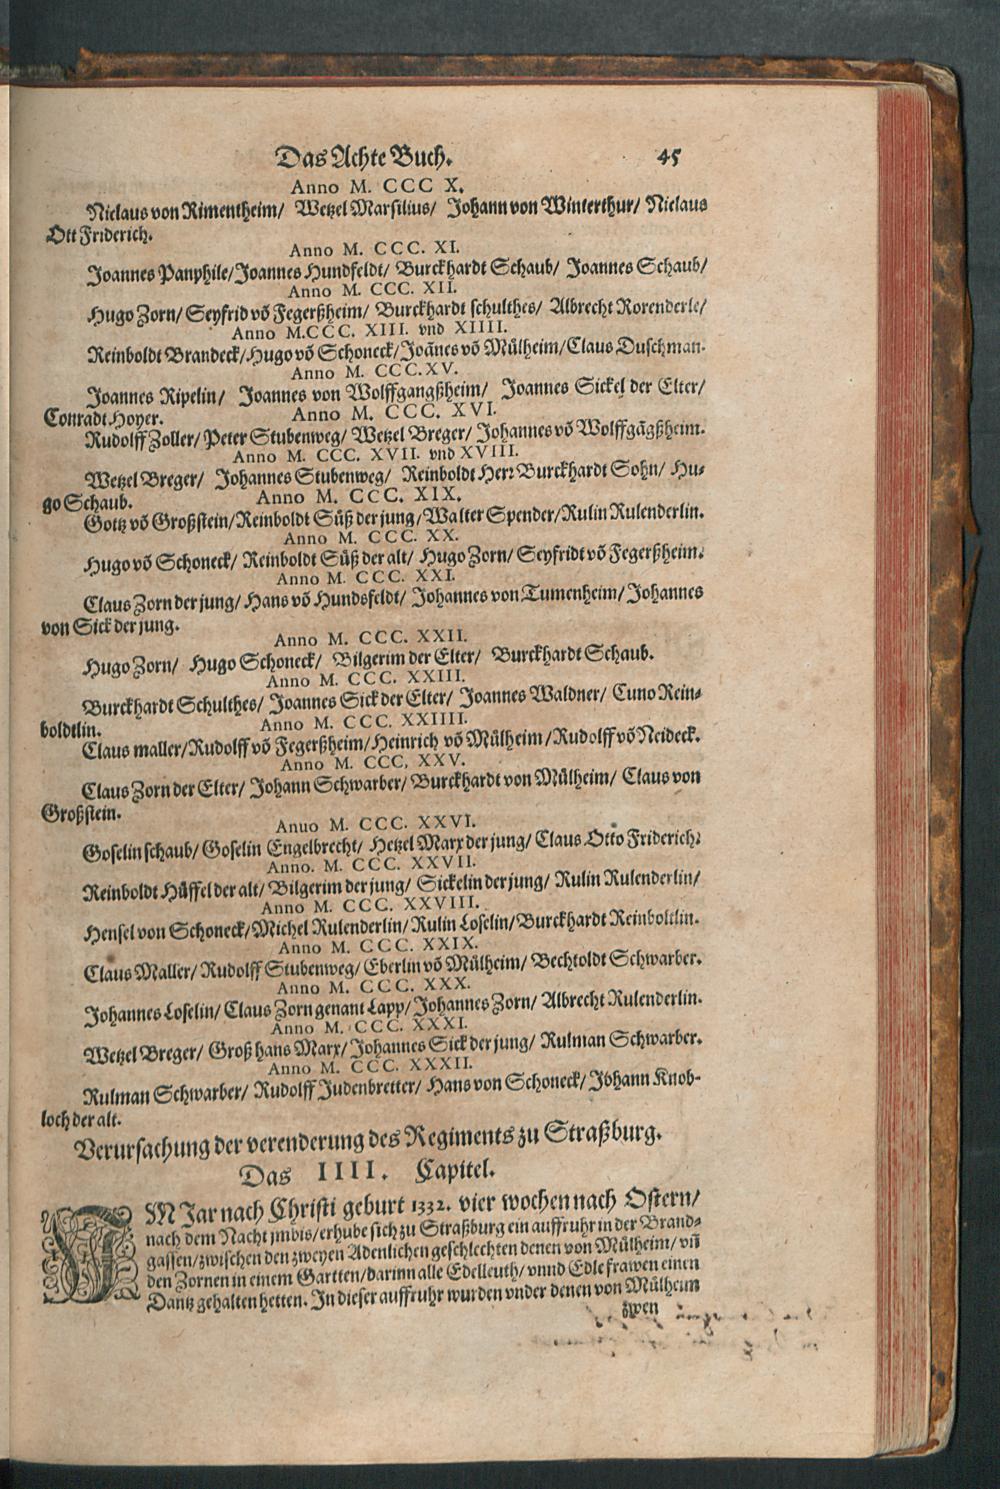 Das Achte Buch. 45
Anno M. CCC X.
Niclaus von Rimentheim/ Wetzel Marsilius/ Johann von Winterthur/ Niclaus
Ott Friderich.
Anno M. CCC. XI.
Joannes Panphile/Joannes Hundfeldt/ Burckhardt Schaub/ Joannes Schaub/
Anno M. CCC. XII.
Hugo Zorn/ Seyfrid võ Fegerßheim/ Burckhardt schulthes/ Albrecht Rorenderle/
Anno M.CCC. XIII. vnd XIIII.
Reinboldt Brandeck/Hugo võ Schoneck/Joãnes võ Mülheim/Claus Duschman.
Anno M. CCC.XV.
Joannes Ripelin/ Joannes von Wolffgangßheim/ Joannes Sickel der Elter/
Conradt Hoyer. Anno M. CCC. XVI.
Rudolff Zoller/ Peter Stubenweg/ Wetzel Breger/ Johannes võ Wolffgãgßheim.
Anno M. CCC. XVII. vnd XVIII.
Wetzel Breger/ Johannes Stubenweg/ Reinboldt Herr Burckhardt Sohn/ Hu-
go Schaub. Anno M. CCC. XIX.
Gottz võ Großstein/Reinboldt Süß der jung/Walter Spender/Rulin Rulenderlin.
Anno M. CCC. XX.
Hugo võ Schoneck/ Reinboldt Süß der alt/ Hugo Zorn/ Seyfridt võ Fegerßheim.
Anno M. CCC. XXI.
Claus Zorn der jung/ Hans võ Hundsfeldt/ Johannes von Tumenheim/Johannes
von Sick der jung.
Anno M. CCC. XXII.
Hugo Zorn/ Hugo Schoneck/ Bilgerim der Elter/ Burckhardt Schaub.
Anno M. CCC. XXIII.
Burckhardt Schulthes/ Joannes Sick der Elter/ Joannes Waldner/ Cuno Rein-
boldtlin. Anno M. CCC. XXIIII.
Claus maller/Rudolff võ Fegerßheim/Heinrich võ Mülheim/Rudolff võ Neideck.
Anno M. CCC, XXV.
Claus Zorn der Elter/ Johann Schwarber/ Burckhardt von Mülheim/ Claus von
Großstein.
Anuo M. CCC. XXVI.
Goselin schaub/ Goselin Engelbrecht/ Hetzel Marx der jung/ Claus Otto Friderich.
Anno. M. CCC. XXVII.
Reinboldt Hüffel der alt/ Bilgerim der jung/ Sickelin der jung/ Rulin Rulenderlin/
Anno M. CCC. XXVIII.
Hensel von Schoneck/Michel Rulenderlin/Rulin Loselin/Burckhardt Reinboltlin.
Anno M. CCC. XXIX.
Claus Maller/ Rudolff Stubenweg/ Eberlin võ Mülheim/ Bechtoldt Schwarber.
Anno M. CCC. XXX.
Johannes Loselin/ Claus Zorn genant Lapp/ Johannes Zorn/ Albrecht Rulenderlin.
Anno M. CCC. XXXI.
Wetzel Breger/ Groß hans Marx/ Johannes Sick der jung/ Rulman Schwarber.
Anno M. CCC. XXXII.
Rulman Schwarber/ Rudolff Judenbretter/ Hans von Schoneck/ Johann Knob-
loch der alt.
Verursachung der verenderung des Regiments zu Straßburg.
Das IIII. Capitel.
IM Jar nach Christi geburt 1332. vier wochen nach Ostern/
nach dem Nacht jmbis/erhube sich zu Straßburg ein auffruhr in der Brand-
gassen/zwischen den zweyen Adenlichen geschlechten denen von Mülheim/ vñ
den Zornen in einem Gartten/darinn alle Edelleuth/vnnd Edle frawen einen
Dantz gehalten hetten. In dieser auffruhr wurden vnder denen von Mülheim
zwen